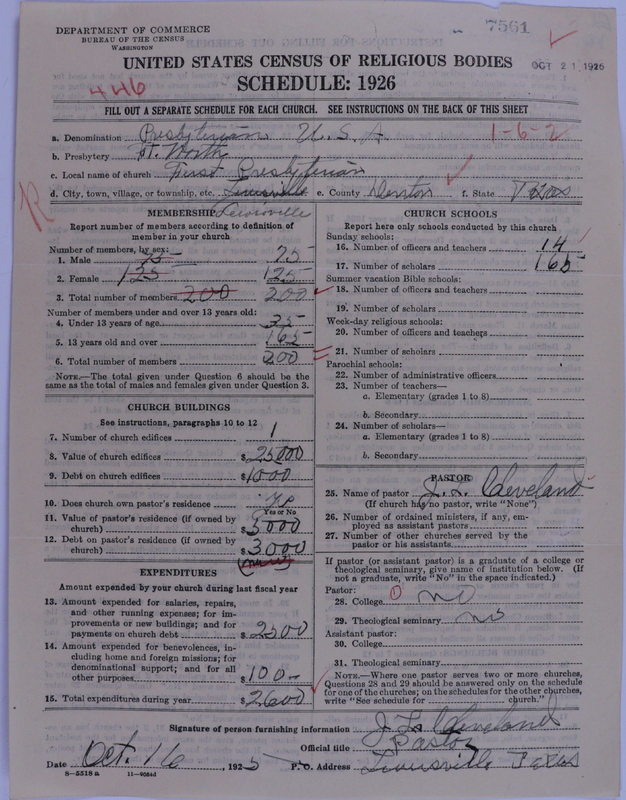 DEPARTMENT OF COMMERCE
BUREAU OF THE CENSUS
WASHINGTON
7561
OCT 21 1926
UNITED STATES CENSUS OF RELIGIOUS BODIES
SCHEDULE: 1926
446
FILL OUT A SEPARATE SCHEDULE FOR EACH CHURCH. SEE INSTRUCTIONS ON THE BACK OF THIS SHEET
a. Denomination Presbyterian U.S.A. 1-6-2
b. Presbytery Ft. Worth
c. Local name of church First Presbyterian
d. City, town, village, or township, etc. Lewisville e. County Denton f. State Texas
Lewisville
MEMBERSHIP
Report number of members according to definition of
member in your church
Number of members, by sex:
1. Male 75 75
2. Female 125 125
3. Total number of members 200 200
Number of members under and over 13 years old:
4. Under 13 years of age 35
5. 13 years old and over 165
6. Total number of members 200
NOTE.—The total given under Question 6 should be the
same as the total of males and females given under Question 3.
CHURCH BUILDINGS
See instructions, paragraphs 10 to 12
7. Number of church edifices 1
8. Value of church edifices $25000
9. Debt on church edifices $1000
10. Does church own pastor's residence
Yes or No
11. Value of pastor's residence (if owned by
church) $5000
12. Debt on pastor's residence (if owned by
church) $3000
EXPENDITURES
Amount expended by your church during last fiscal year
13. Amount expended for salaries, repairs,
and other running expenses; for im-
provements or new buildings; and for
payments on church debt $2500
14. Amount expended for benevolences, in-
cluding home and foreign missions; for
denominational support; and for all
other purposes $100
15. Total expenditures during year $2600
CHURCH SCHOOLS
Report here only schools conducted by this church
Sunday schools:
16. Number of officers and teachers 14
17. Number of scholars 165
Summer vacation Bible schools:
18. Number of officers and teachers
19. Number of scholars
Week-day religious schools:
20. Number of officers and teachers
21. Number of scholars
Parochial schools:
22. Number of administrative officers
23. Number of teachers—
a. Elementary (grades 1 to 8)
b. Secondary
24. Number of scholars—
a. Elementary (grades 1 to 8)
b. Secondary
PASTOR
25. Name of pastor J. L. Cleveland
(If church has no pastor, write "None")
26. Number of ordained ministers, if any, em-
ployed as assistant pastors
27. Number of other churches served by the
pastor or his assistants
If pastor (or assistant pastor) is a graduate of a college or
theological seminary, give name of institution below. (If
not a graduate, write "No" in the space indicated.)
Pastor:
28. College 1 no
29. Theological seminary no
Assistant pastor:
30. College
31. Theological seminary
NOTE.—Where one pastor serves two or more churches,
Questions 28 and 29 should be answered only on the schedule
for one of the churches; on the schedules for the other churches,
write "See schedule for church."
Signature of person furnishing information J. L. Cleveland
Official title Pastor
Date Oct. 16, 1925 P. O. Address Lewisville Texas
8—5518 a 11—9054d